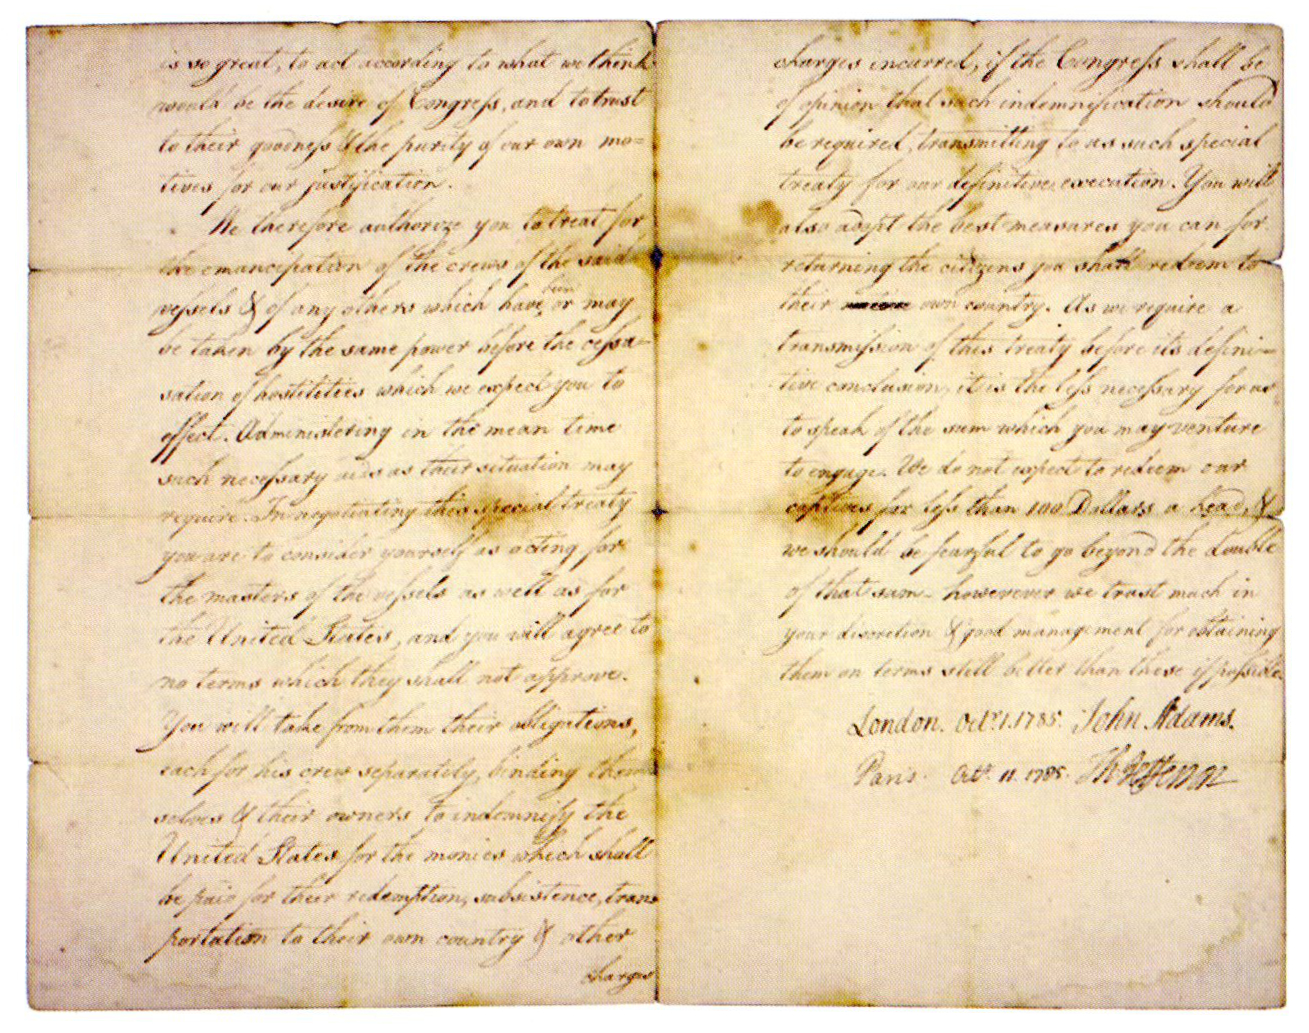 is so great, to act according to what we think
would be the desire of Congress, and to trust
to their goodness & the purity of our own mo=
tives for our justification.
We therefore authorize you to treat for
the emancipation of the crews of the said
vessels & of any others which have been or may
be taken by the same power before the cessa-
sation of hostilities which we expect you to
effect. Administering in the mean time
such necessary aids as their situation may
require. In negotiating this special treaty
you are to consider yourself as acting for
the masters of the vessels as well as for
the United States, and you will agree to
no terms which they shall not approve.
You will take from them their obligations,
each for his crew separately, binding them
selves & their owners to indemnify the
United States for the monies which shall
be paid for their redemption, subsistence, trans
portation to their own country & other
charges
charges incurred, if the Congress shall be
of opinion that such indemnification should
be required, transmitting to us such special
treaty for our definitive execution. You will
also adopt the best measures you can for
returning the citizens you shall redeem to
their own country. As we require a
transmission of this treaty before its defini-
tive conclusion, it is the less necessary for us
to speak of the sum which you may venture
to engage. We do not expect to redeem our
captives for less than 100 Dollars a head, &
we should be fearful to go beyond the double
of that sum - howerever we trust much in
your discretion & good management for obtaining
them on terms still better than these if possible.
London. Oct. 1. 1785. John Adams.
Paris. Oct. 11. 1785. Th: Jefferson